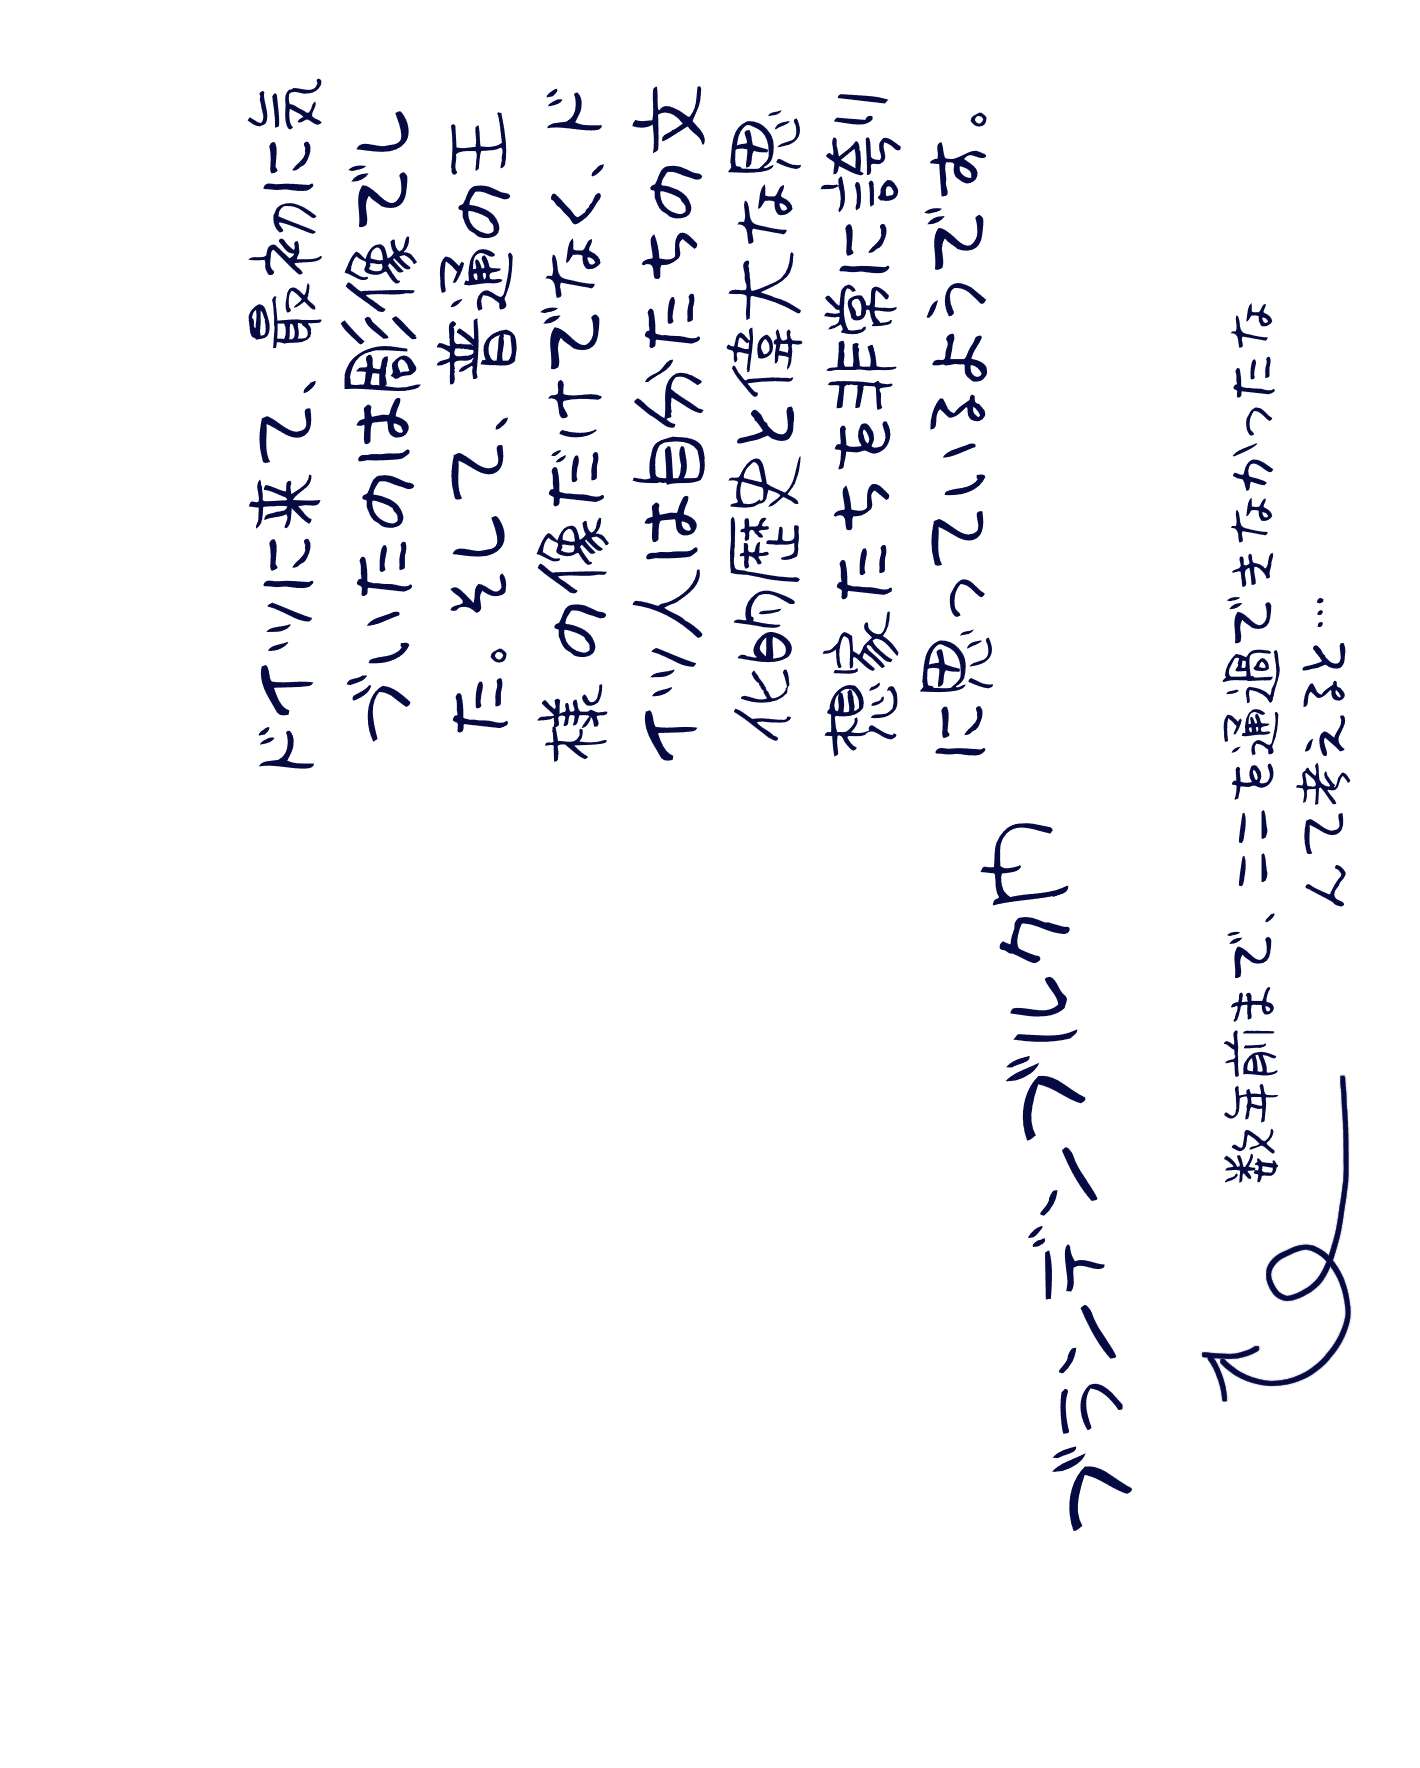 ドイツに来て、最初に気
づいたのは彫像でし
た。そして、普通の王
様の像だけでなく、ド
イツ人は自分たちの文
化的歴史と偉大な思
想家たちを非常に誇り
に思っているようです。
ブランデンブルク门
数年前まで、ここを通過できなかったな
んて考えると…